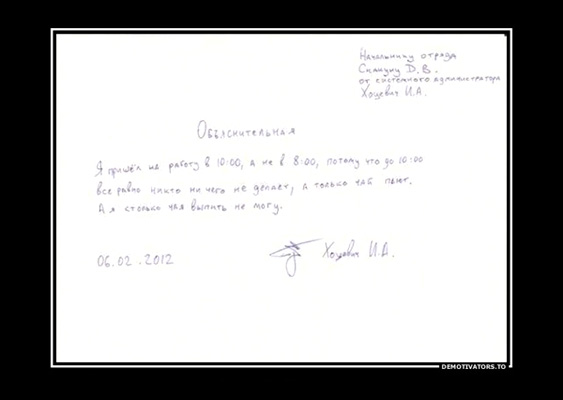 Начальнику отряда
Д.В.
от системного администратора
Хоцевич И.А.
Объяснительная
Я пришёл на работу в 10:00, а не в 8:00, потому что до 10:00
все равно никто ни чего не делает, а только чай пьют.
А я столько чая выпить не могу.
06.02.2012
Хоцевич И.А.
DEMOTIVATORS.TO